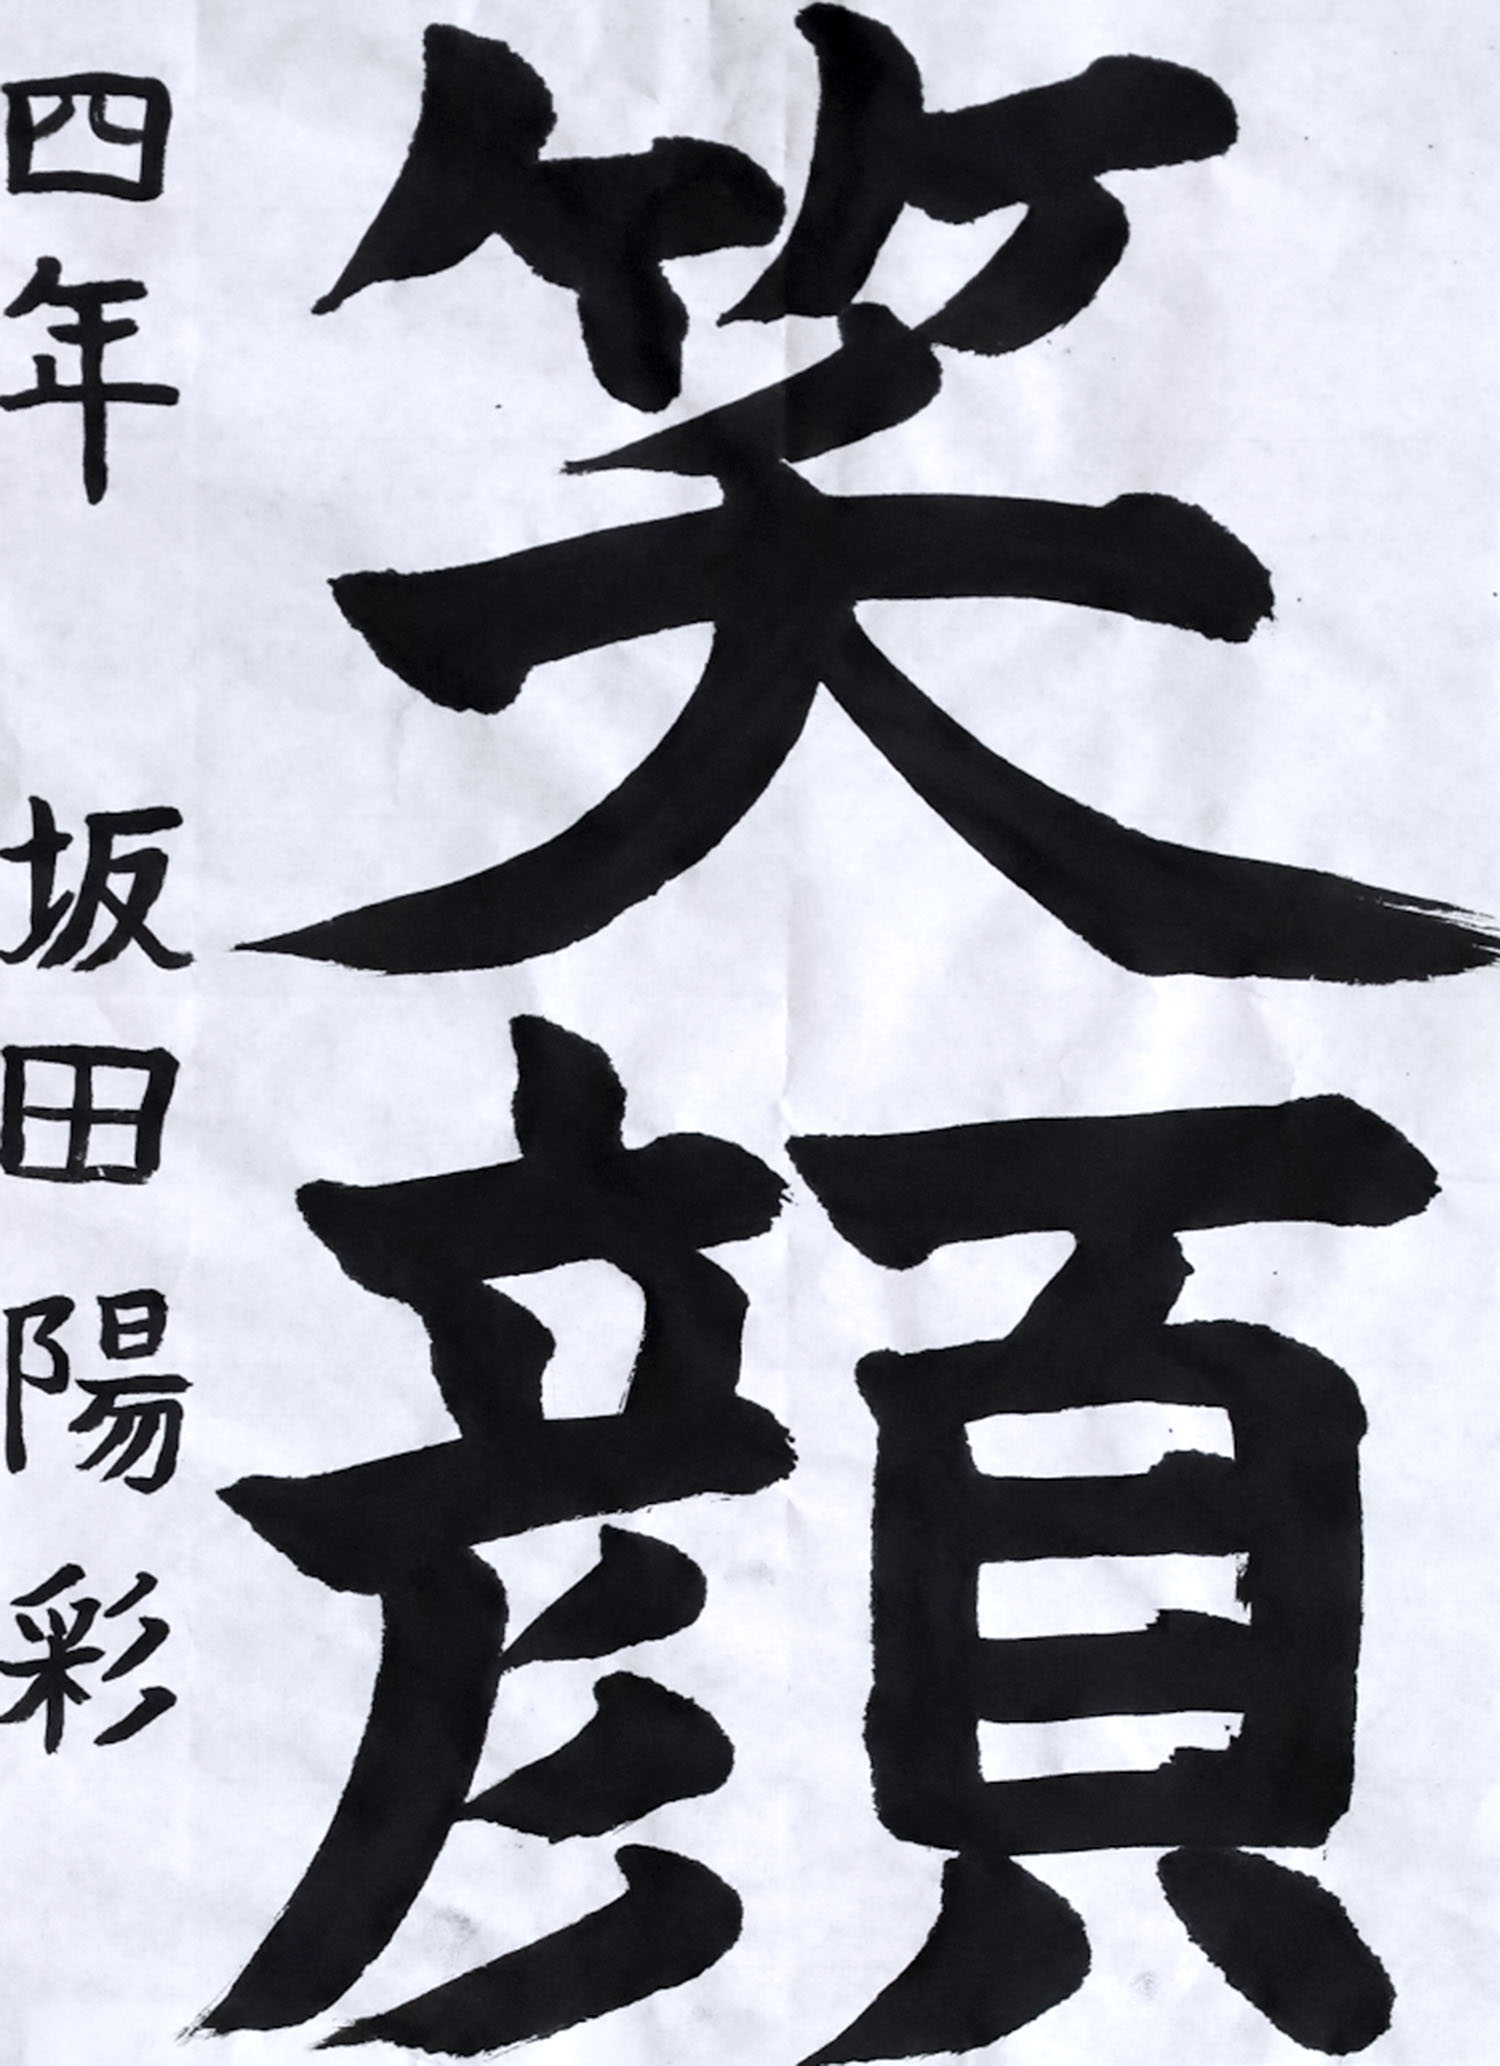 笑顔
四年 坂田陽彩